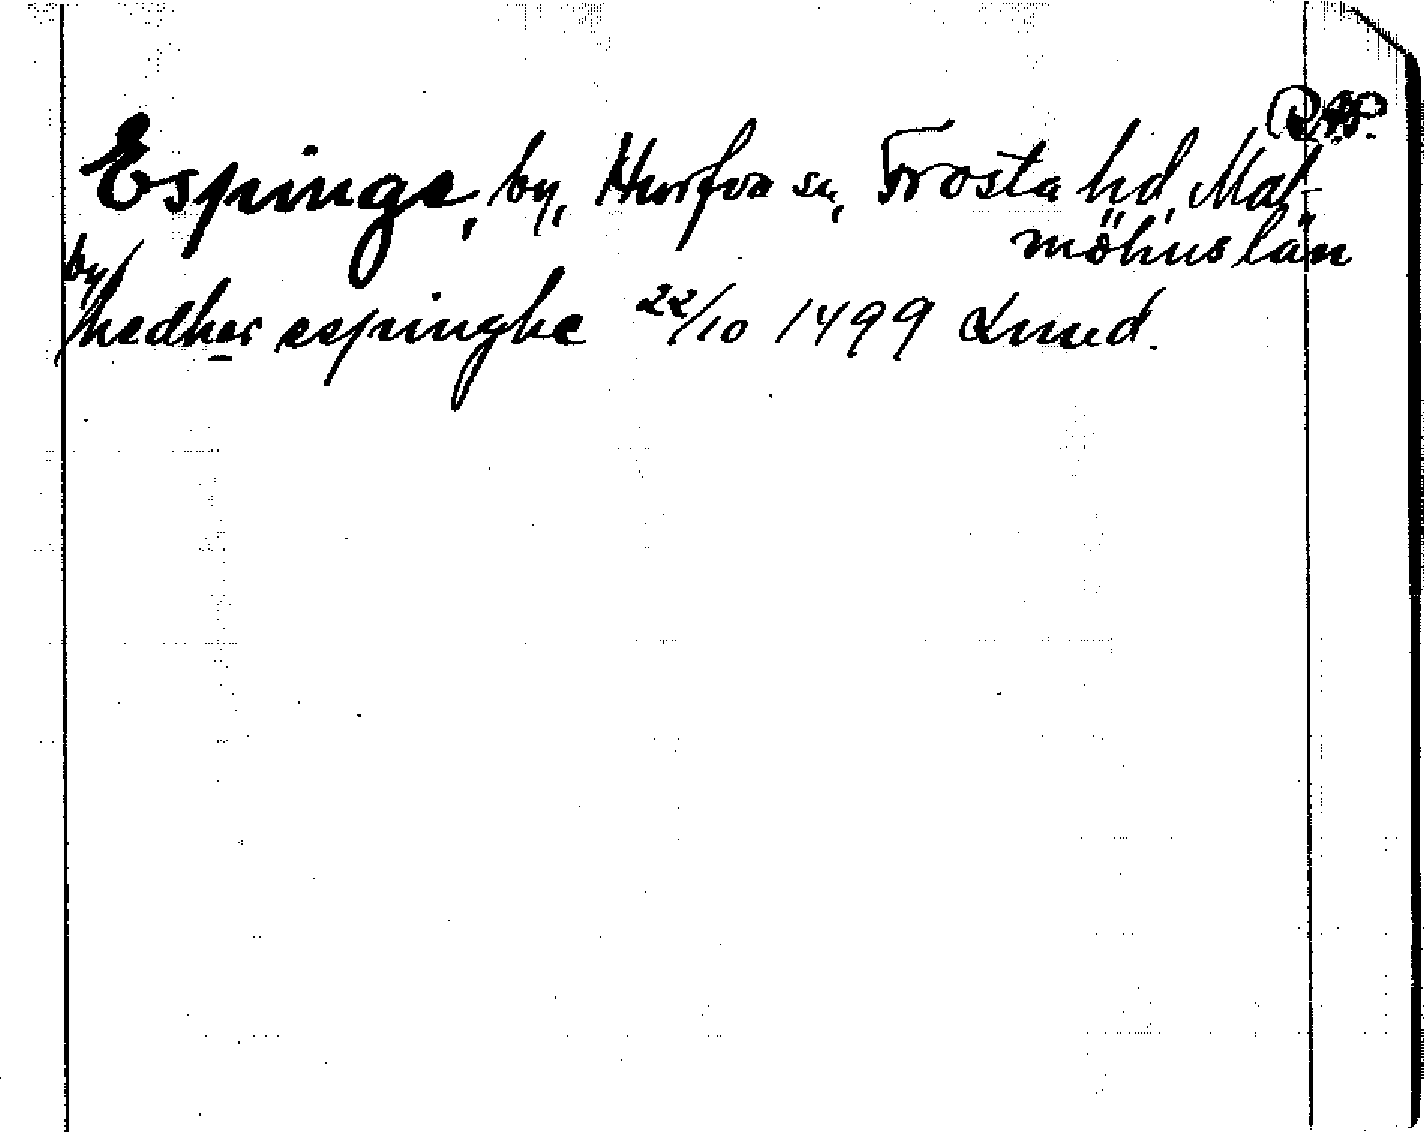 R.A.P.
Espinge, by, Hurfva sn, Frosta hd, Mal-
möhus län
by
nedher espinghe 22/10 1499 Lund.